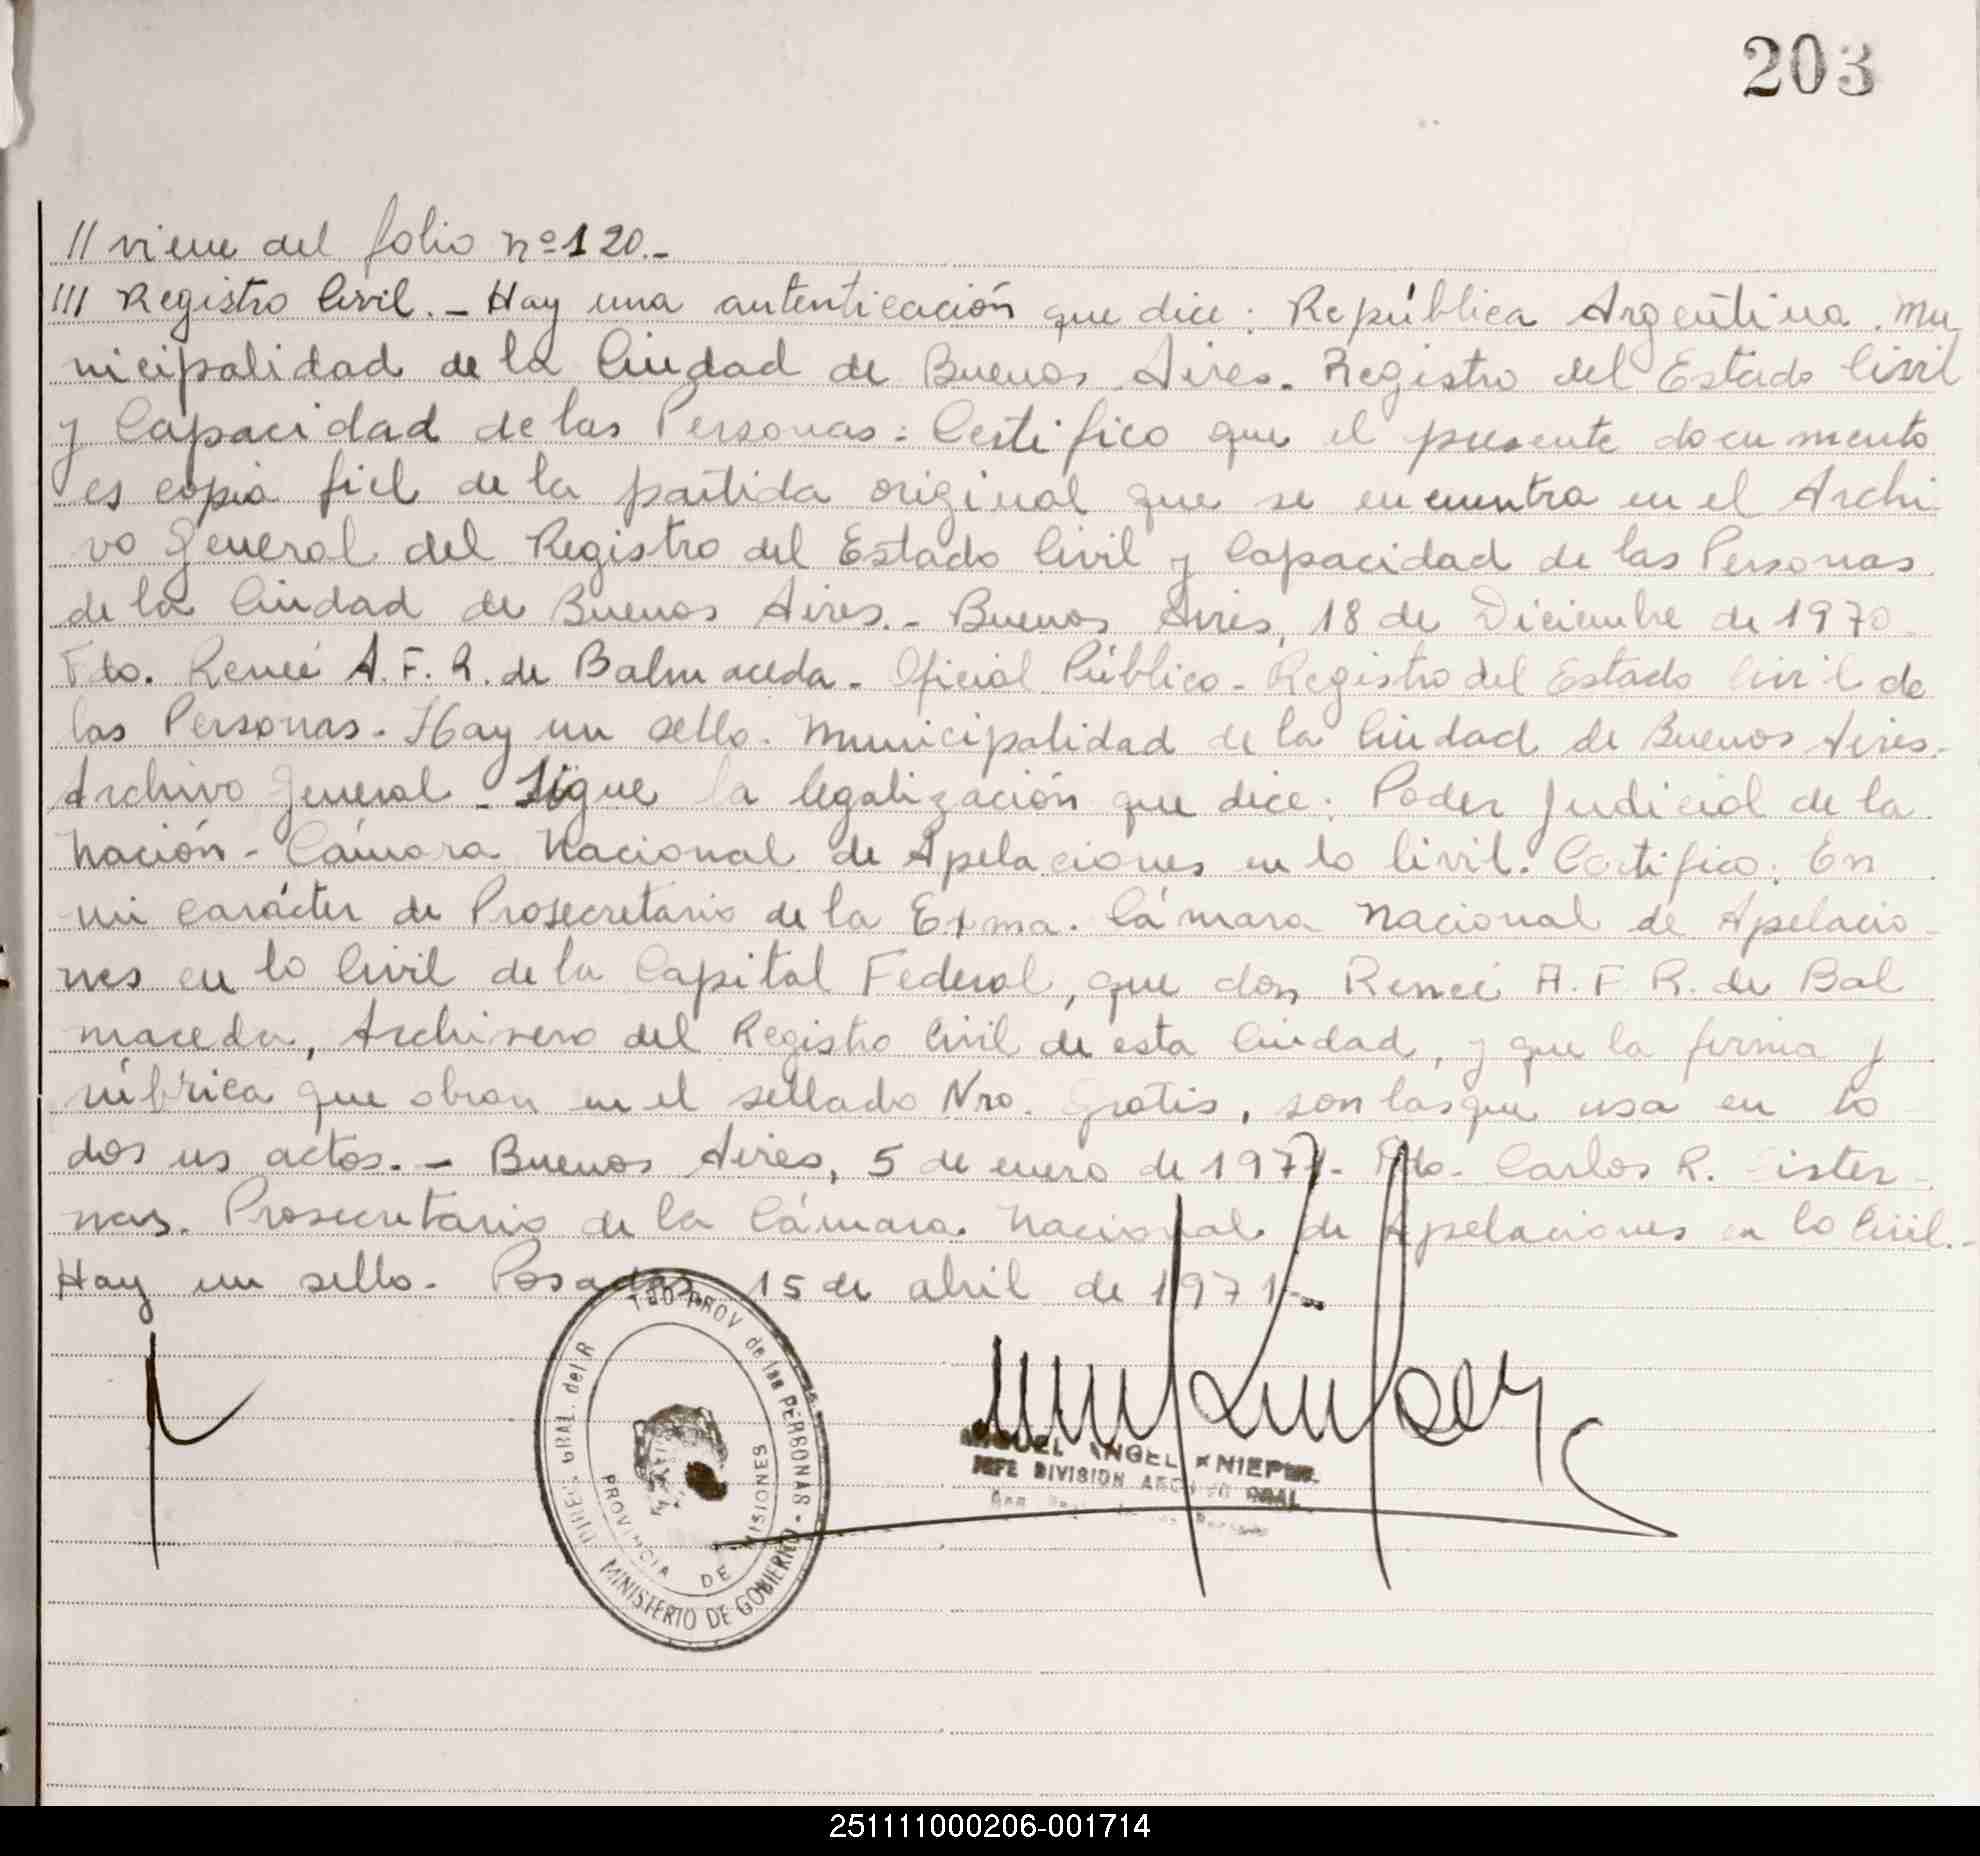 203
// viene del folio nº 120.-
/// Registro Civil.- Hay una autenticación que dice: República Argentina. Mu
nicipalidad de la Ciudad de Buenos Aires. Registro del Estado Civil
y Capacidad de las Personas: Certifico que el presente documento
es copia fiel de la partida original que se encuentra en el Archi
vo General del Registro del Estado Civil y Capacidad de las Personas
de la Ciudad de Buenos Aires.- Buenos Aires, 18 de Diciembre de 1970
Fdo. Reneé A. F. R. de Balmaceda - Oficial Público - Registro del Estado Civil de
las Personas - Hay un sello. Municipalidad de la Ciudad de Buenos Aires.
Archivo General - Sigue la legalización que dice: Poder Judicial de la
Nación - Cámara Nacional de Apelaciones en lo Civil. Certifico: En
mi carácter de Prosecretario de la Exma. Cámara Nacional de Apelacio
nes en lo Civil de la Capital Federal, que don Reneé A. F. R. de Bal
maceda, Archivero del Registro Civil de esta Ciudad, y que la firma y
rúbrica que obran en el sellado Nro. Gratis, son las que usa en to
dos us actos.- Buenos Aires, 5 de enero de 1971- Fdo. Carlos R. Cister
nas. Prosecretario de la Cámara Nacional de Apelaciones en lo Civil.-
Hay un sello - Posadas, 15 de abril de 1971-
GRAL. del R
PROV de las PERSONAS
MINISTERIO DE GOBIERNO
PROVINCIA DE MISIONES
MIGUEL ANGEL KNIEPER
JEFE DIVISION ARCHIVO GRAL
251111000206-001714